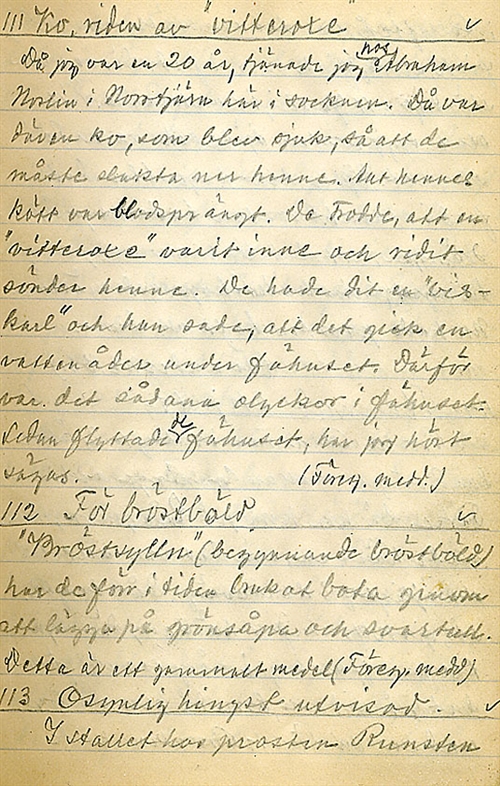 111 Ko, riden av "vitteroxe"
Då jag var en 20 år, tjänade jag hos Abraham
Norlin i Norrtjärn här i socknen. Då var
där en ko, som blev sjuk, så att de
måste slakta ner henne. Allt hennes
kött var blodsprängt. De trodde, att en
"vitteroxe" varit inne och ridit
sönder henne. De hade dit en "vis-
karl" och han sade, att det gick en
vattenåder under fähuset. Därför
var det sådana olyckor i fähuset.
Sedan flyttade de fähuset, har jag hört
sägas. (Föreg. medd.)
112 För bröstböld
"Bröstsylln" (begynnande bröstböld)
har de förr i tiden brukat bota genom
att lägga på grönsåpa och svartull.
Detta är ett gammalt medel (Föreg. medd)
113 Osynlig hingst utvisad.
I stallet hos prosten Runsten